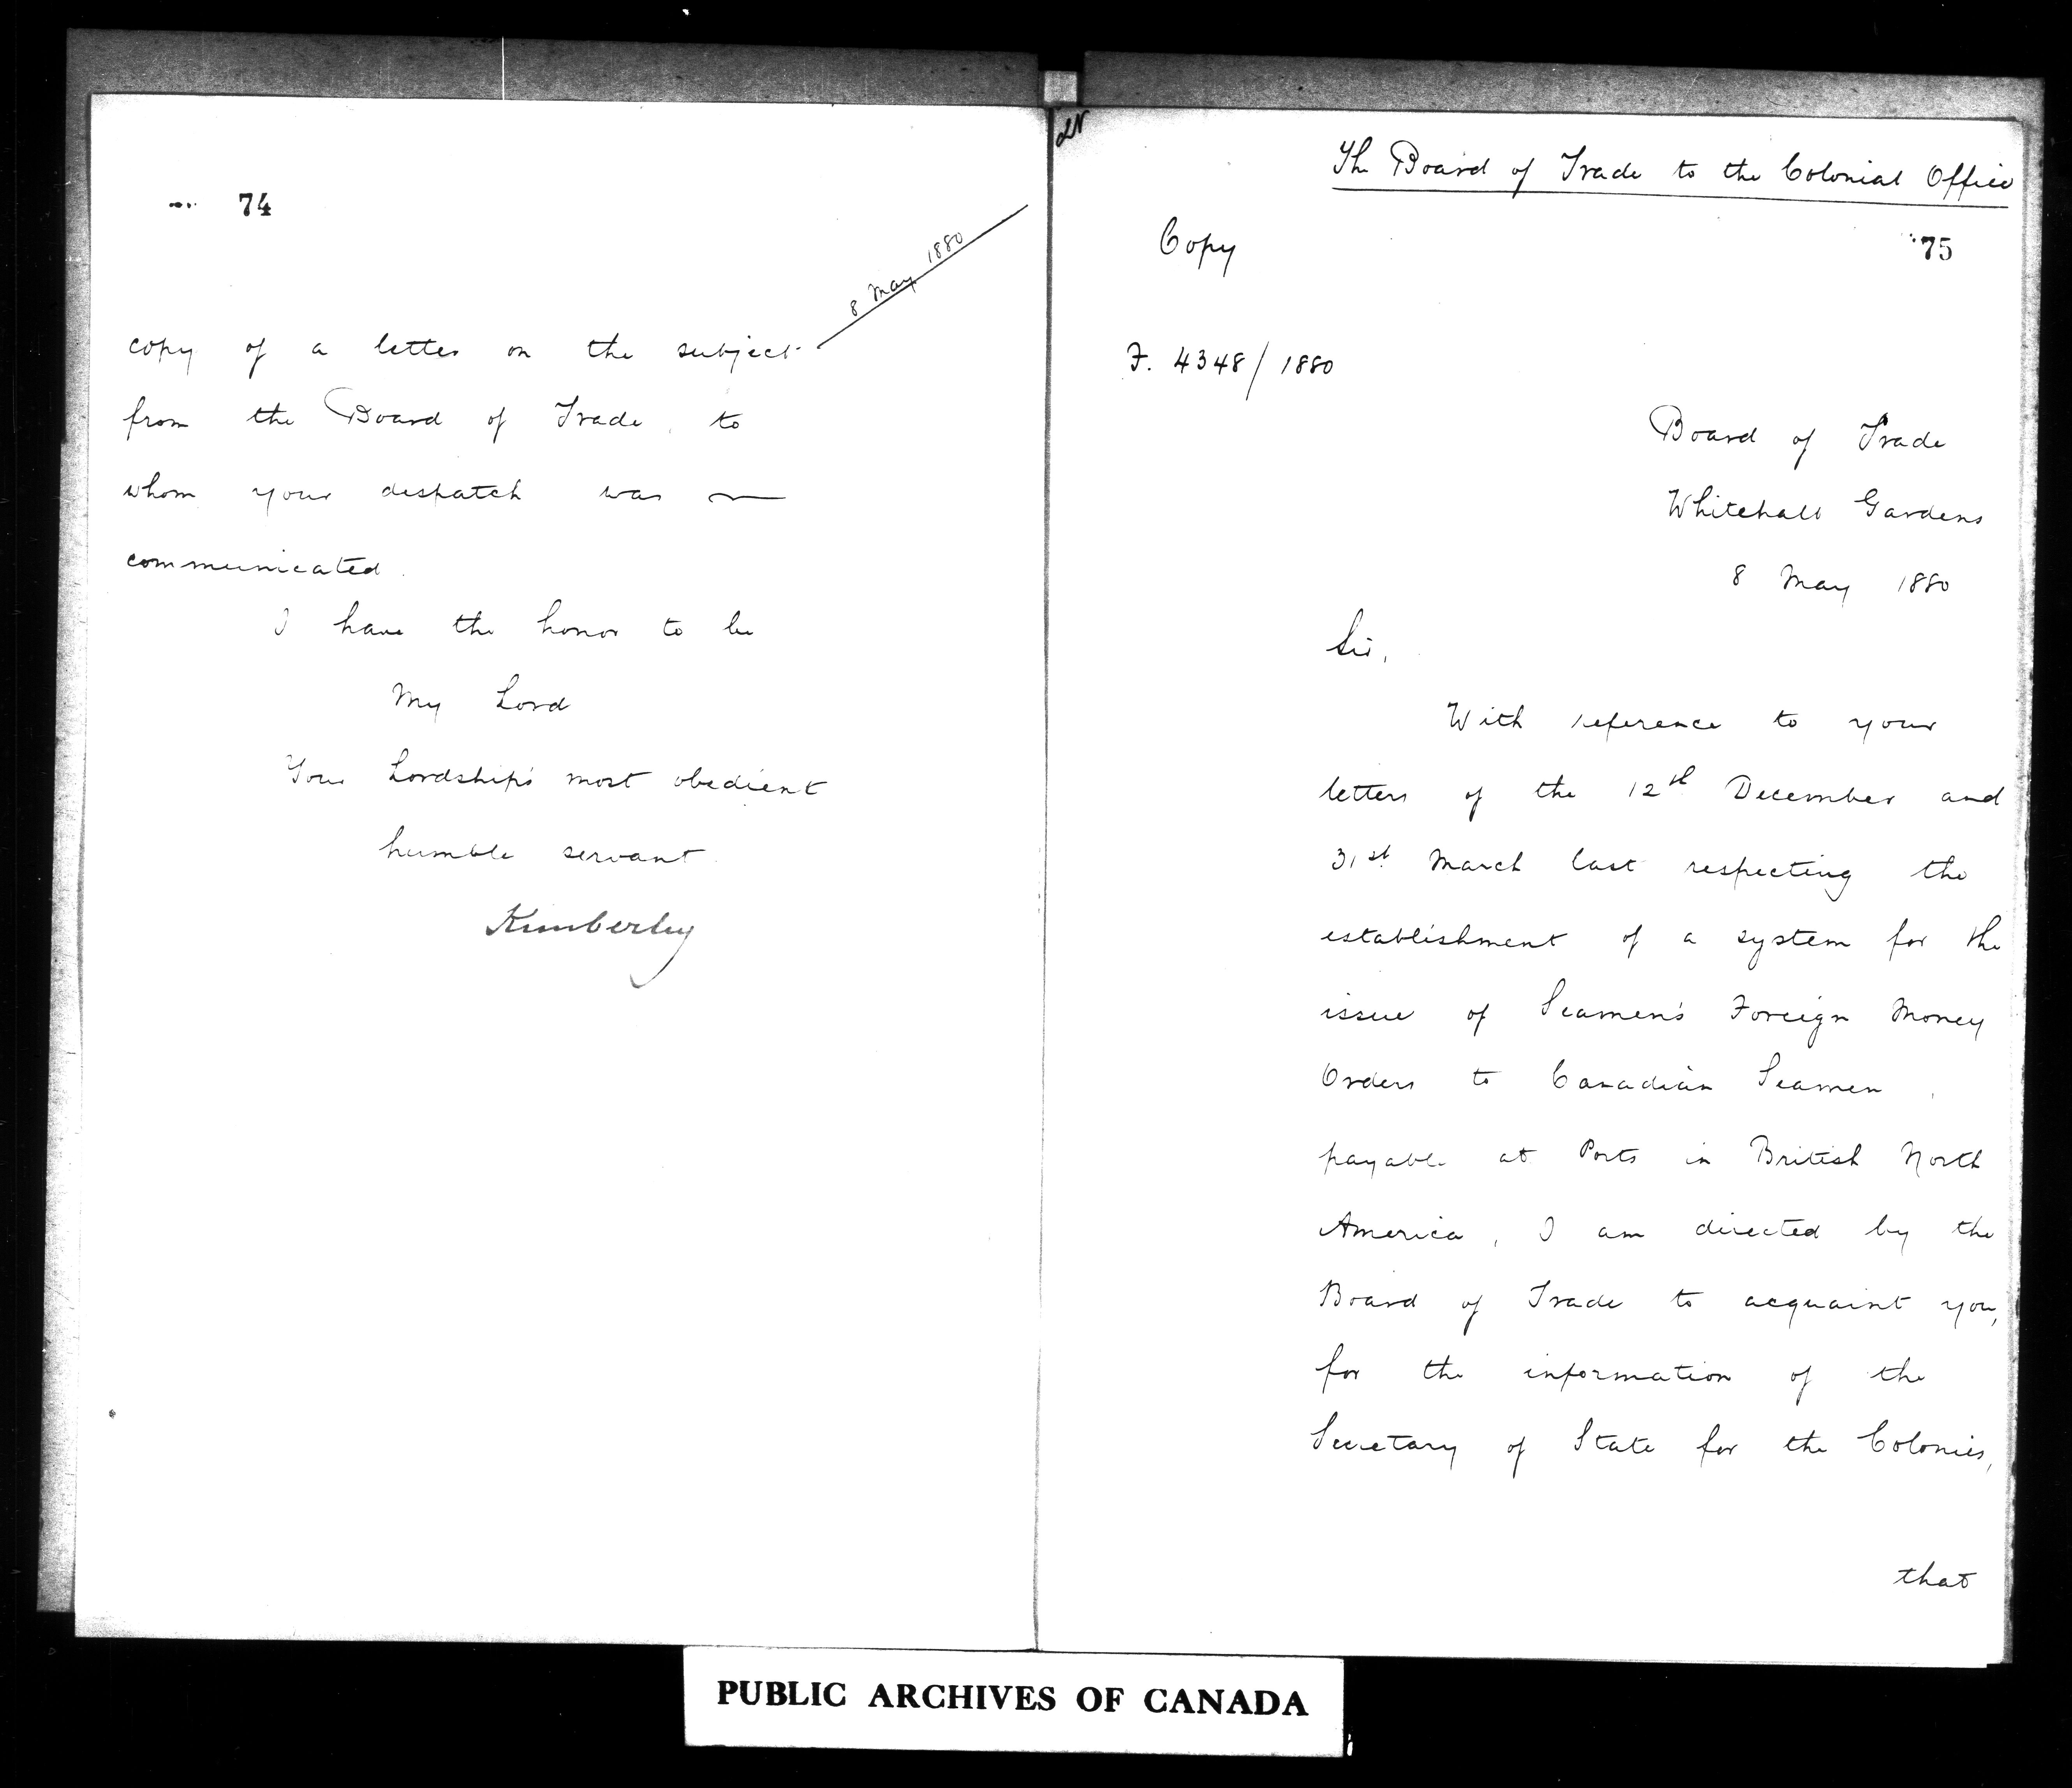 74
8 May 1880
copy of a letter on the subject
from the Board of Trade, to
whom your despatch was
communicated.
I have the honor to be
My Lord
Your Lordship's most obedient
humble servant
Kimberley
The Board of Trade to the Colonial Office
Copy
75
F. 4348/1880
Board of Trade
Whitehall Gardens
8 May 1880
Sir,
With reference to your
letters of the 12th December and
31st March last respecting the
establishment of a system for the
issue of Seamen's Foreign Money
Orders to Canadian Seamen
payable at Ports in British North
America, I am directed by the
Board of Trade to acquaint you,
for the information of the
Secretary of State for the Colonies,
that
PUBLIC ARCHIVES OF CANADA